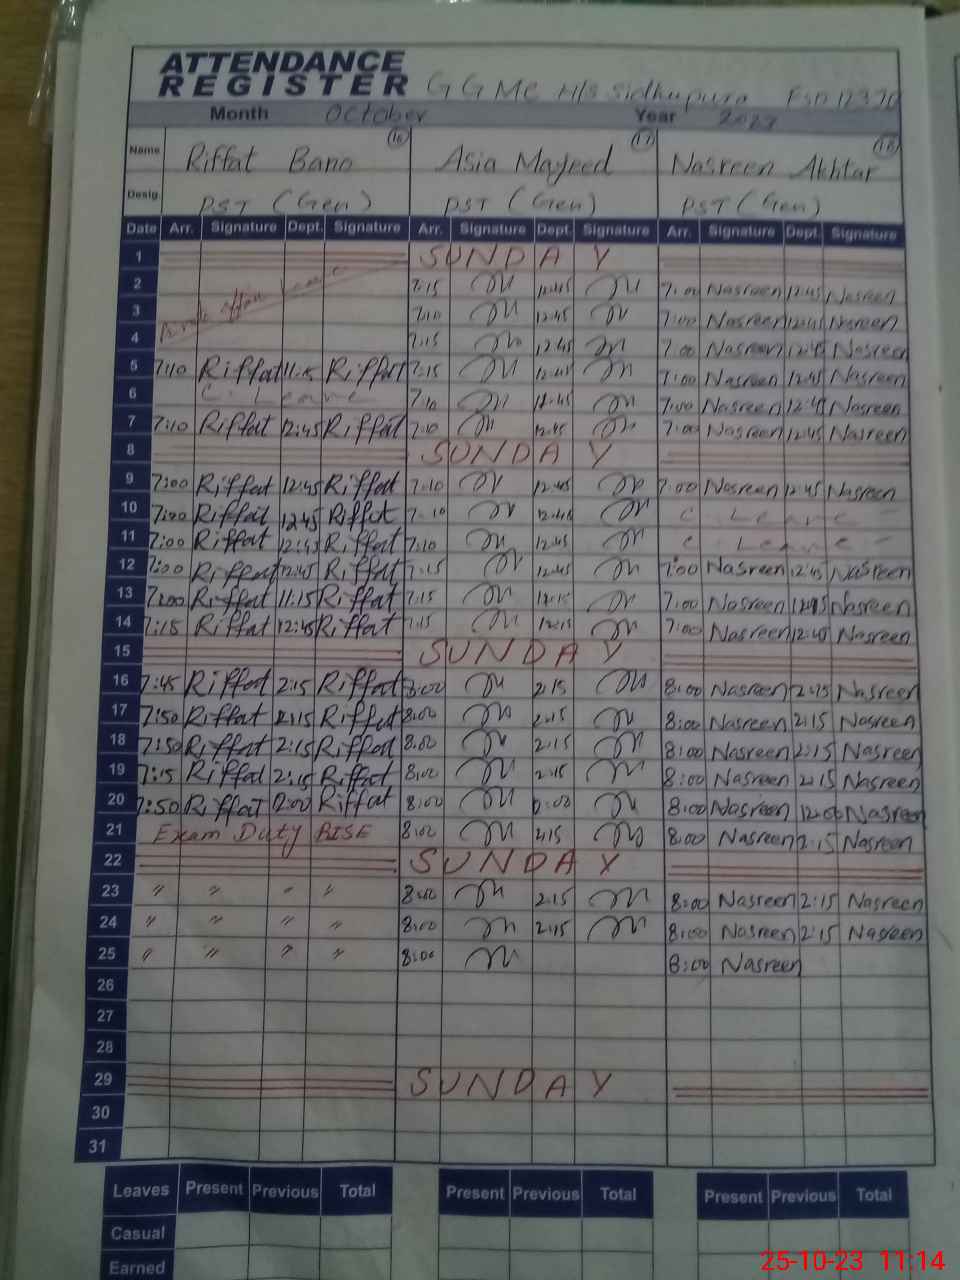 ATTENDANCE
REGISTER GGMC H/S Sidhupura
Month October Year
Name Riffat Bano 16 Asia Majeed 17 Nasreen Akhtar 18
Desig. PST (Gen) PST (Gen) PST (Gen)
Date Arr. Signature Dept. Signature Arr. Signature Dept. Signature Arr. Signature Dept. Signature
1 SUNDAY
2 7:15 12:45 7:00 Nasreen 12:45 Nasreen
3 7:10 12:45 7:00 Nasreen 12:45 Nasreen
4 7:15 12:45 7:00 Nasreen 12:45 Nasreen
5 7:10 Riffat 11:15 Riffat 7:15 12:45 7:00 Nasreen 12:45 Nasreen
6 C. Leave 7:10 12:45 7:00 Nasreen 12:45 Nasreen
7 7:10 Riffat 12:45 Riffat 7:10 12:45 7:00 Nasreen 12:45 Nasreen
8 SUNDAY
9 7:00 Riffat 12:45 Riffat 7:10 12:45 7:00 Nasreen 12:45 Nasreen
10 7:00 Riffat 12:45 Riffat 7:10 12:45 C. Leave -
11 7:00 Riffat 12:45 Riffat 7:10 12:45 C. Leave -
12 7:00 Riffat 12:45 Riffat 7:15 12:45 7:00 Nasreen 12:45 Nasreen
13 7:00 Riffat 11:15 Riffat 7:15 7:00 Nasreen Nasreen
14 7:15 Riffat 12:45 Riffat 7:15 7:00 Nasreen 12:45 Nasreen
15 SUNDAY
16 7:45 Riffat 2:15 Riffat 8:00 2:15 8:00 Nasreen 2:15 Nasreen
17 7:50 Riffat 2:15 Riffat 8:00 2:15 8:00 Nasreen 2:15 Nasreen
18 7:50 Riffat 2:15 Riffat 8:00 2:15 8:00 Nasreen 2:15 Nasreen
19 7:15 Riffat 2:15 Riffat 8:00 2:15 8:00 Nasreen 2:15 Nasreen
20 7:50 Riffat Riffat 8:00 8:00 Nasreen 12:00 Nasreen
21 Exam Duty BISE 8:00 2:15 8:00 Nasreen 2:15 Nasreen
22 SUNDAY
23 " " " " 8:00 2:15 8:00 Nasreen 2:15 Nasreen
24 " " " " 8:00 2:15 8:00 Nasreen 2:15 Nasreen
25 " " " " 8:00 8:00 Nasreen
26
27
28
29 SUNDAY
30
31
Leaves Present Previous Total Present Previous Total Present Previous Total
Casual
Earned
25-10-23 11:14